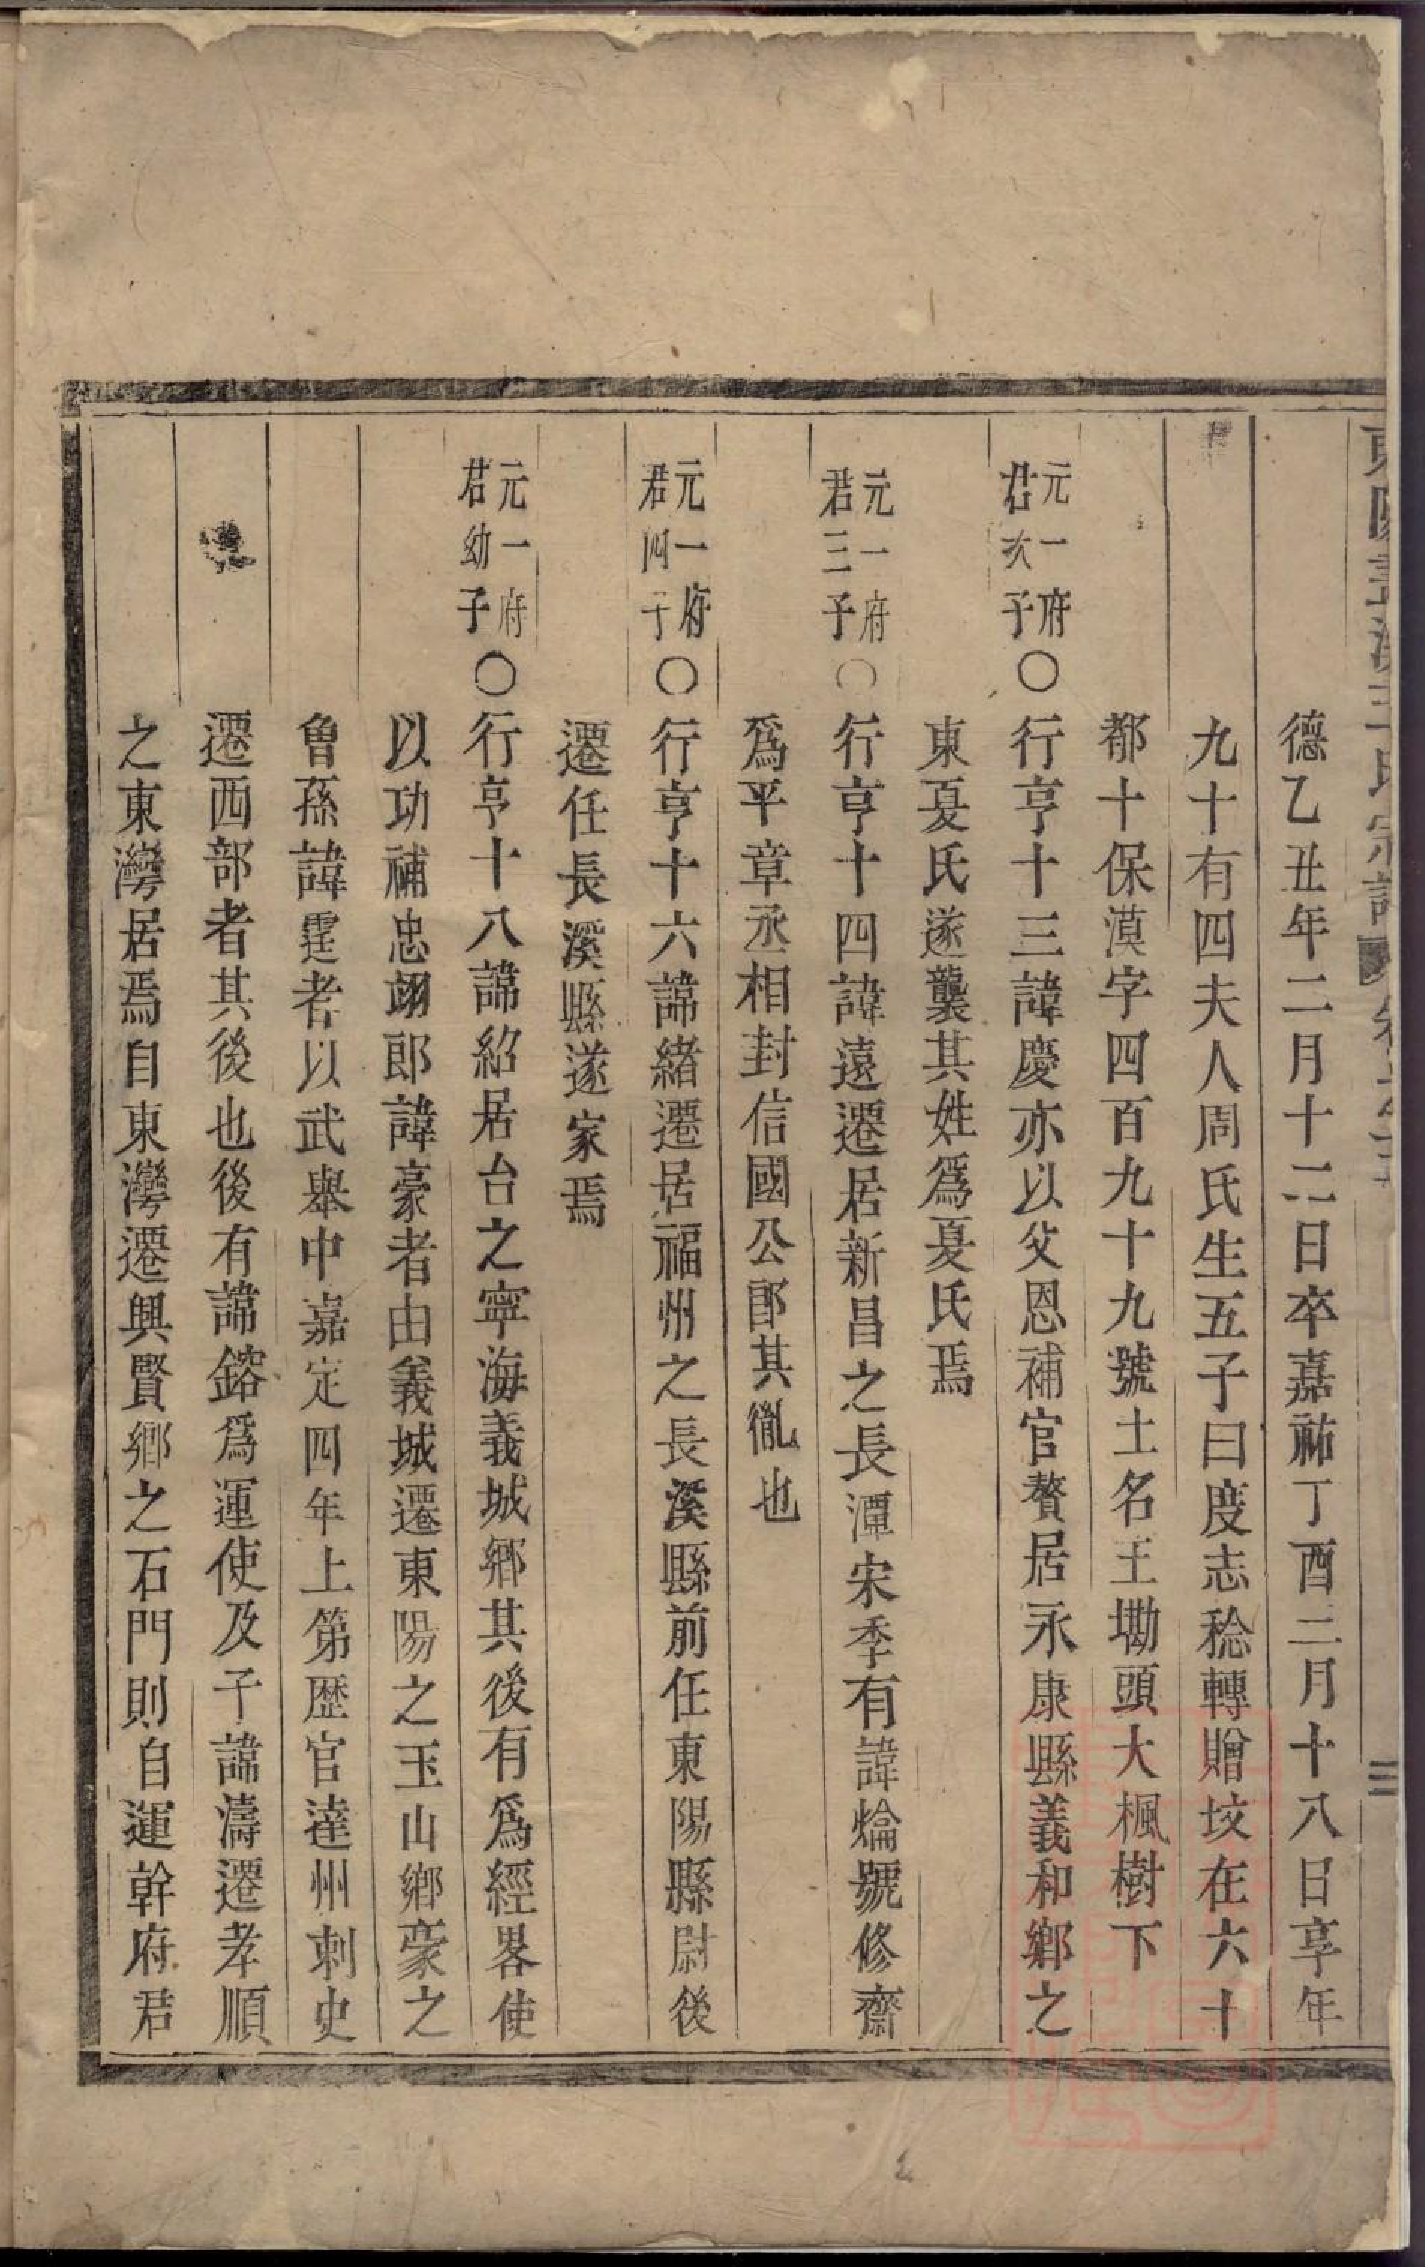 德乙丑年二月十二日卒嘉祐丁酉二月十八日享年
九十有四夫人周氏生五子曰度志稔轉贈㧡在六十
都十保漠字四百九十九號土名王墈頭大楓樹下
元一府君次子〇行亨十三諱慶亦以父恩補官贅居永康縣義和鄉之
東夏氏遂襲其姓爲夏氏焉
元一府君三子〇行亨十四諱遠遷居新昌之長潭宋季有諱爚號修齋
爲平章丞相封信國公卽其胤也
元一府君四子〇行亨十六諱緒遷居福州之長溪縣前任東陽縣尉後
遷任長溪縣遂家焉
元一府君幼子〇行亨十八諱紹居台之寧海義城鄉其後有爲經畧使
以功補忠翊郎諱豪者由義城遷東陽之玉山鄉豪之
魯孫諱霆者以武舉中嘉定四年上第歷官達州刺史
遷西部者其後也後有諱鎔爲運使及子諱濤遷孝順
之東灣居焉自東灣遷興賢鄉之石門則自運幹府君